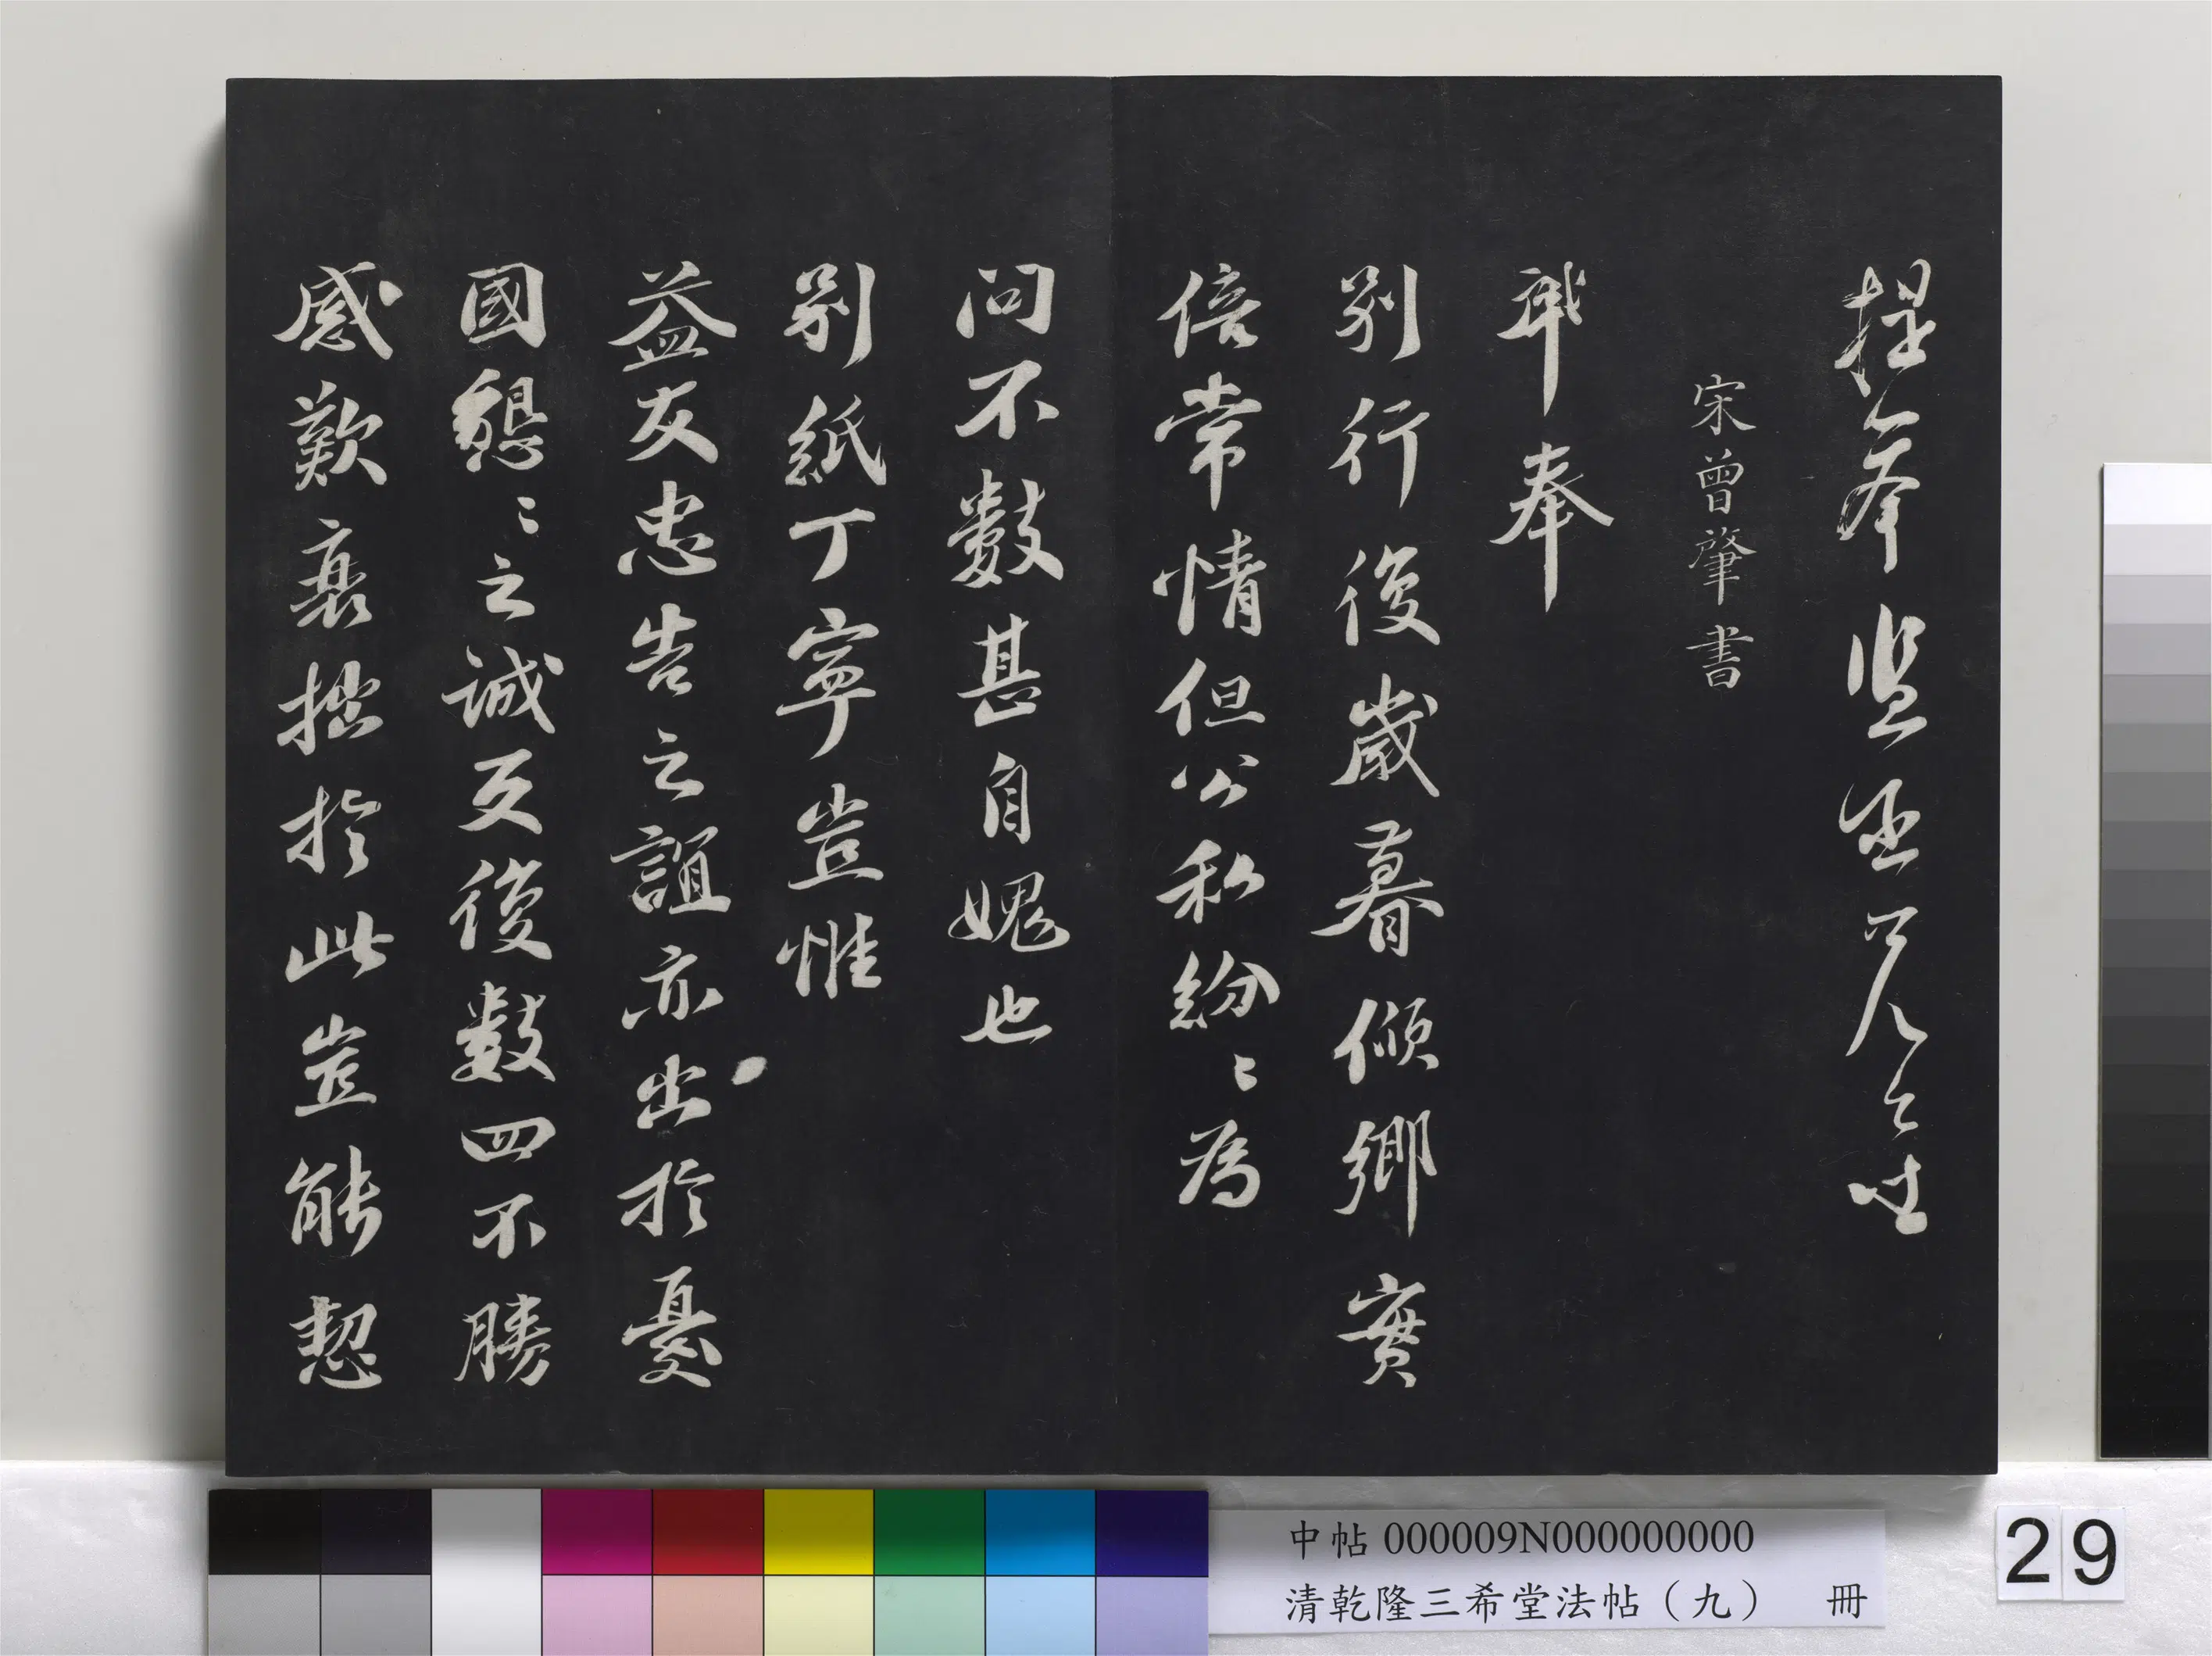 提舉監丞
宋曾肇書
肇奉
別行復歲暮傾鄉實
倍常情但公私紛〻為
問不數甚自媿也
別紙丁寧豈惟
益友忠告之誼亦出於憂
國懇〻之誠反復數四不勝
感歎衰拙於此豈能恝
中帖 000009N000000000
清乾隆三希堂法帖（九） 冊
29